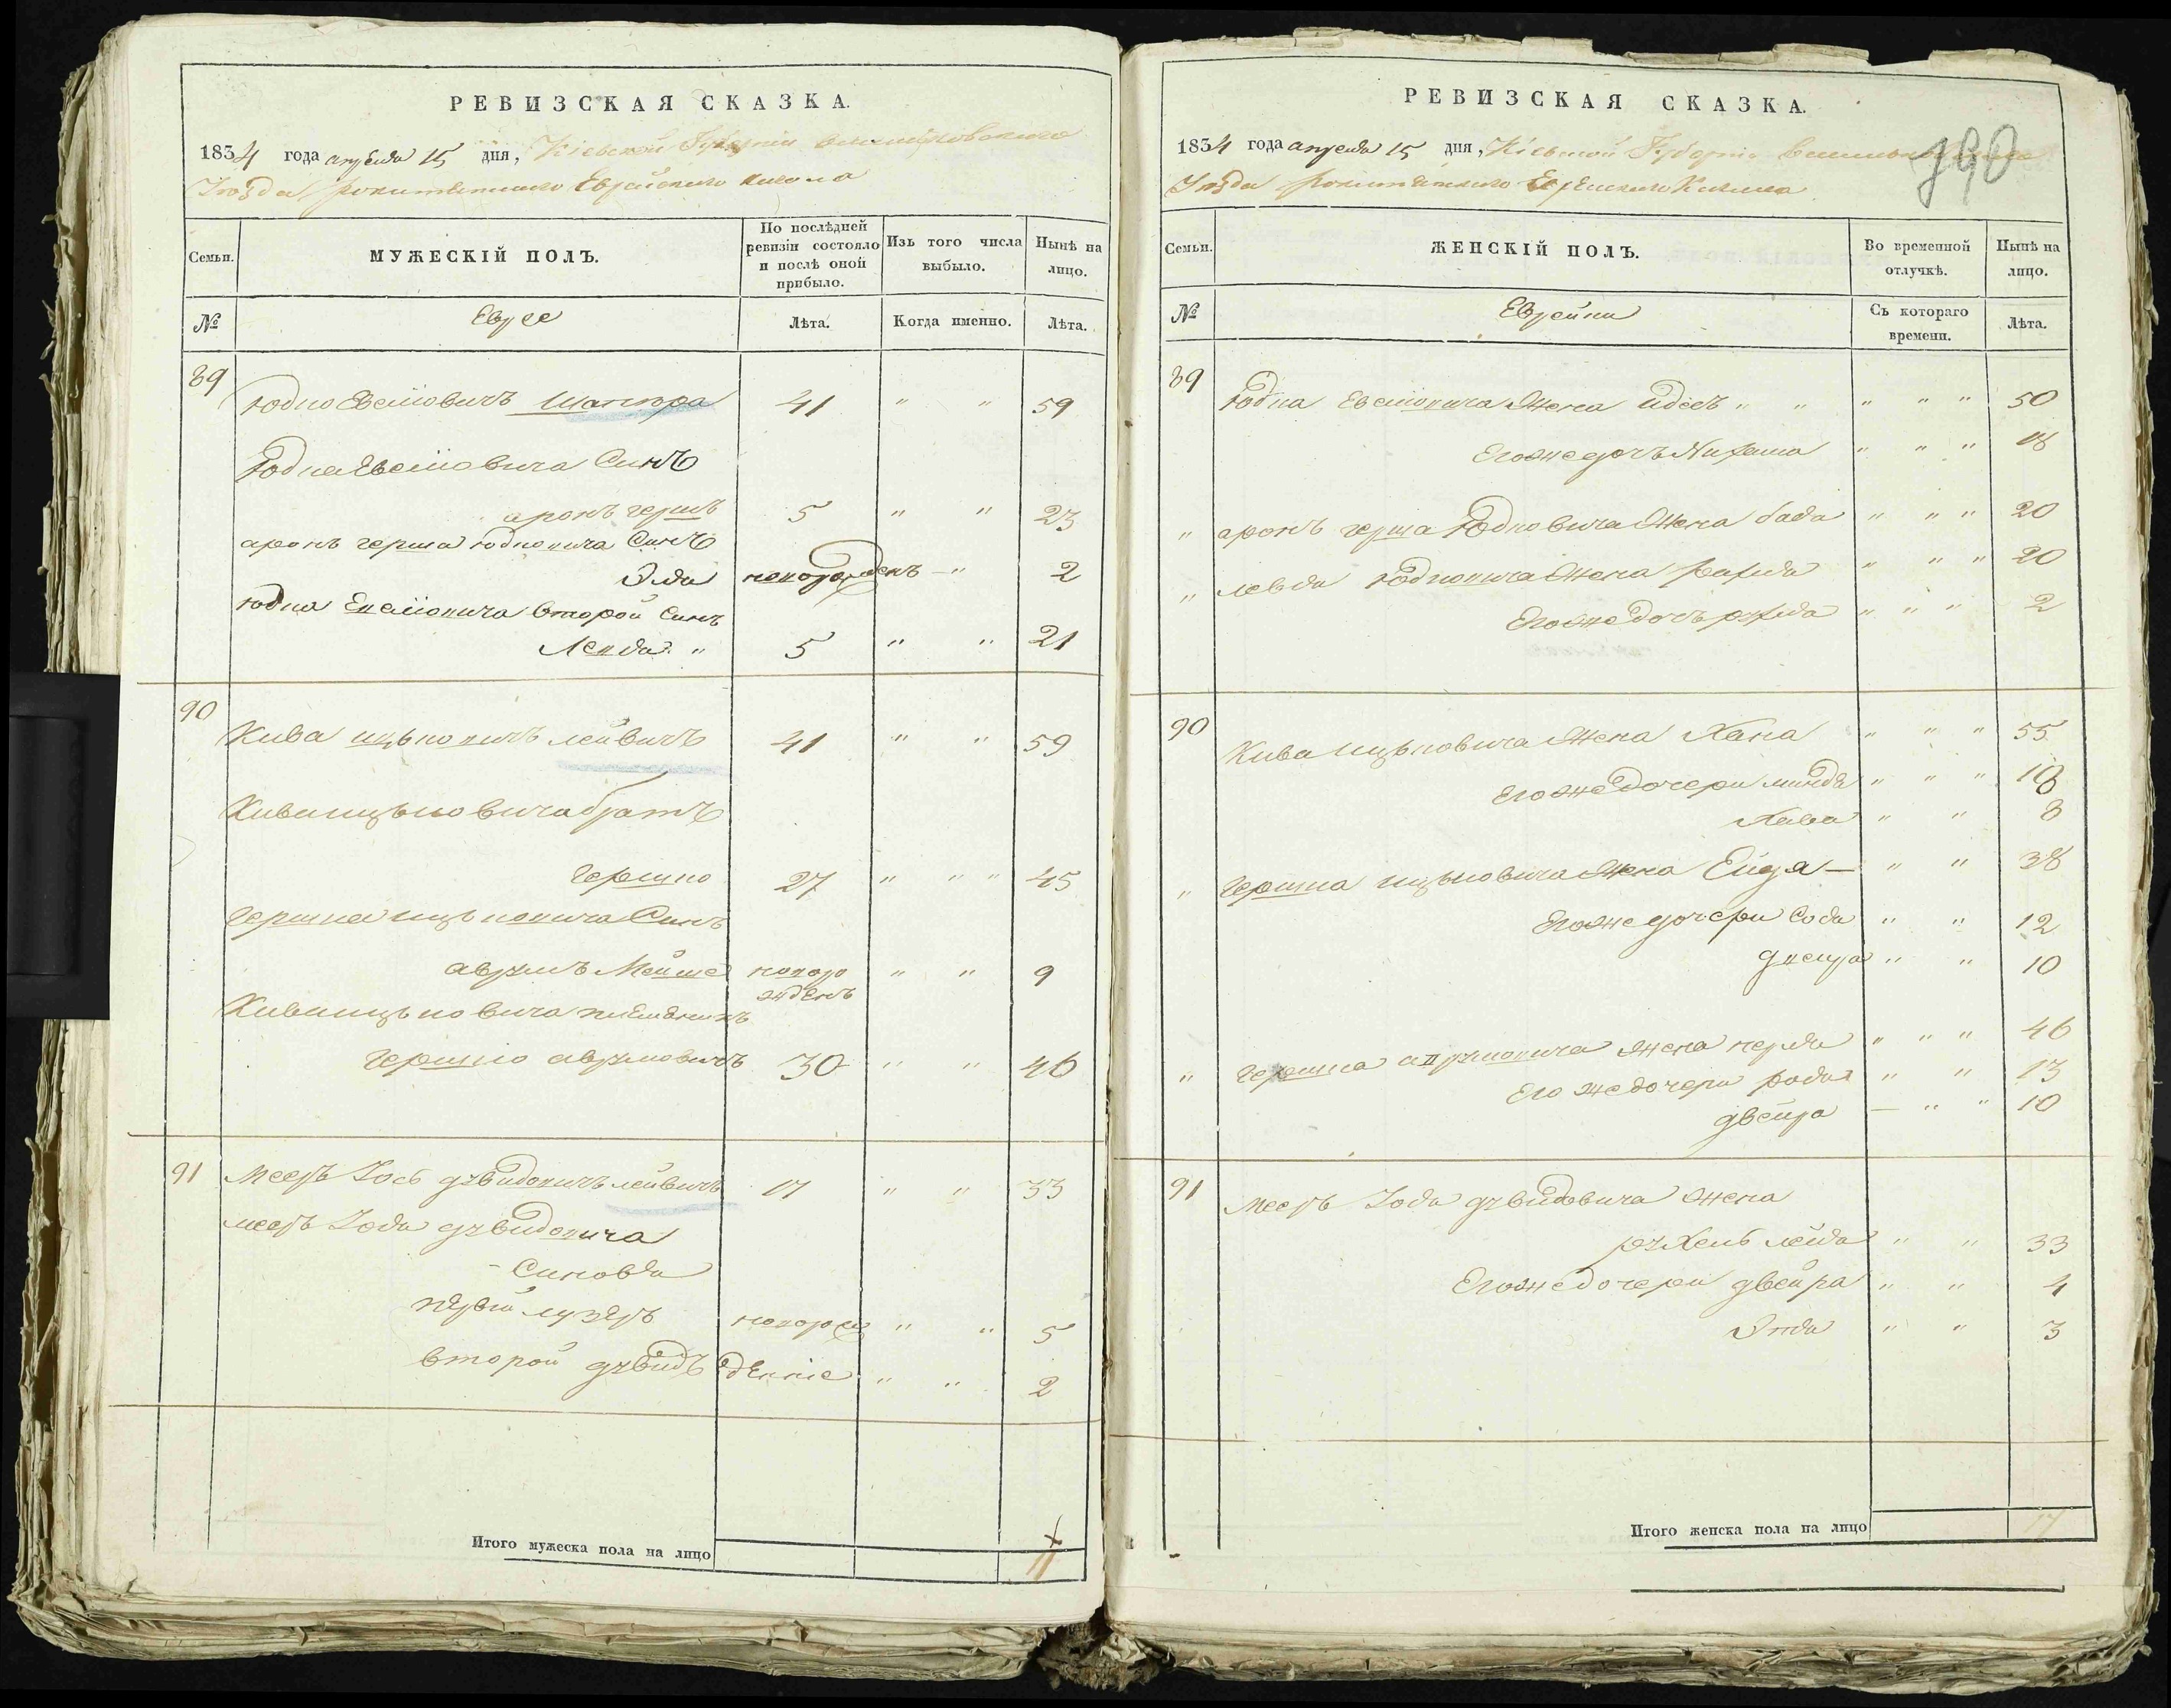 РЕВИЗСКАЯ СКАЗКА.
1834 года апреля 15 дня, Кіевской Губерніи Васильковского
Уѣзда рокитянского Еврейского кагала
Семьи.
МУЖЕСКІЙ ПОЛЪ.
По послѣдней ревизіи состояло и послѣ оной прибыло.
Изъ того числа выбыло.
Нынѣ на лицо.
№
Евреи
Лѣта.
Когда именно.
Лѣта.
89
Юдко Евсіовичъ Шапира 41 " " 59
Юдка Евсіовича Синъ
аронъ гершъ 5 " " 23
аронъ герша Юдковича Синъ
Эля новорожденъ — " 2
Юдка Евсіовича второй Синъ
Лейба " 5 " " 21
90
Кива ицьковичъ лейвичъ 41 " " 59
Кива ицьковича братъ
Гершко 27 " " " 45
Гершка ицьковича Синъ
аврумъ Мойше новорожденъ " " 9
Кива ицьковича племянникъ
Гершко аврумовичъ 30 " " 46
91 Мееръ Іось дувидовичъ лейвичъ 17 " " 33
мееръ Іося дувидовича
Синовья
первій лузеръ новорож " " 5
второй дувидъ денніе " " 2
Итого мужеска пола на лицо 11
РЕВИЗСКАЯ СКАЗКА.
790
1834 года апреля 15 дня, Кіевской Губерніи Васильковского
Уѣзда рокитянского Еврейского Кагала
Семьи.
ЖЕНСКІЙ ПОЛЪ.
Во временной отлучкѣ.
Нынѣ на лицо.
№
Еврейки
Съ котораго времени.
Лѣта.
89 Юдка Евсіовича Жена Идесъ " " " " " 50
Его же дочъ Нихама " " " 18
" аронъ герша Юдковича Жена бася " " " 20
" лейба Юдковича Жена рахля " " " 20
Его же дочъ рухля " " " 2
90
Кива ицьковича Жена Хана " " " 55
Его же дочери минда " " " 18
Хава " " 8
" Гершка ицьковича Жена Ейдя — " " 38
Его же дочери Сося " " 12
двейра " " 10
" Гершка аврумовича Жена перля " " " 46
Его же дочери рося " " 13
двейра — " " 10
91 Мееръ Іося дувидовича Жена
рухель лейя " " 33
Его же дочери двейра " " 4
Этя " " 3
Итого женска пола на лицо 17